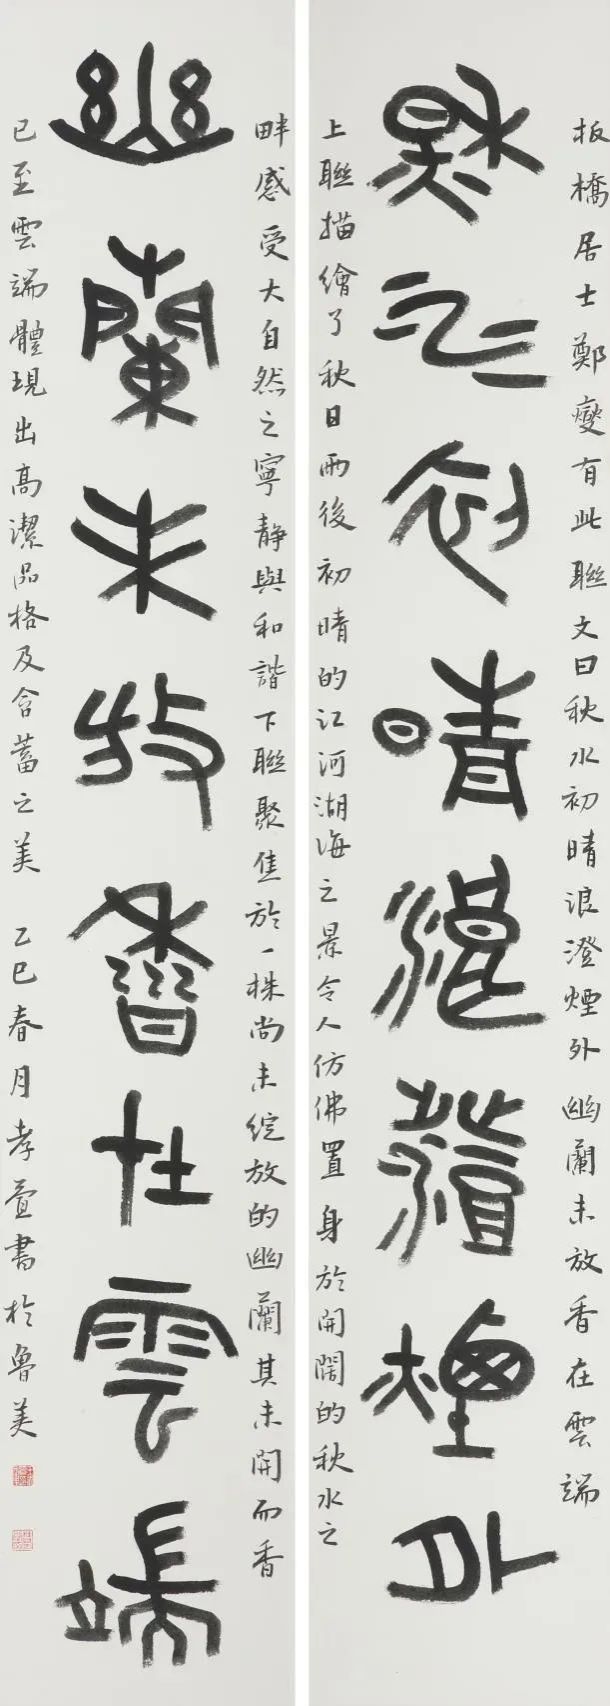 秋水初晴浪澄煙外
幽蘭未放香在雲端
板橋居士鄭燮有此聯文曰秋水初晴浪澄煙外幽蘭未放香在雲端
上聯描繪了秋日雨後初晴的江河湖海之景令人仿佛置身於開闊的秋水之
畔感受大自然之寧靜與和諧下聯聚焦於一株尚未綻放的幽蘭其未開而香
已至雲端體現出高潔品格及含蓄之美 乙巳春月孝萱書於魯美